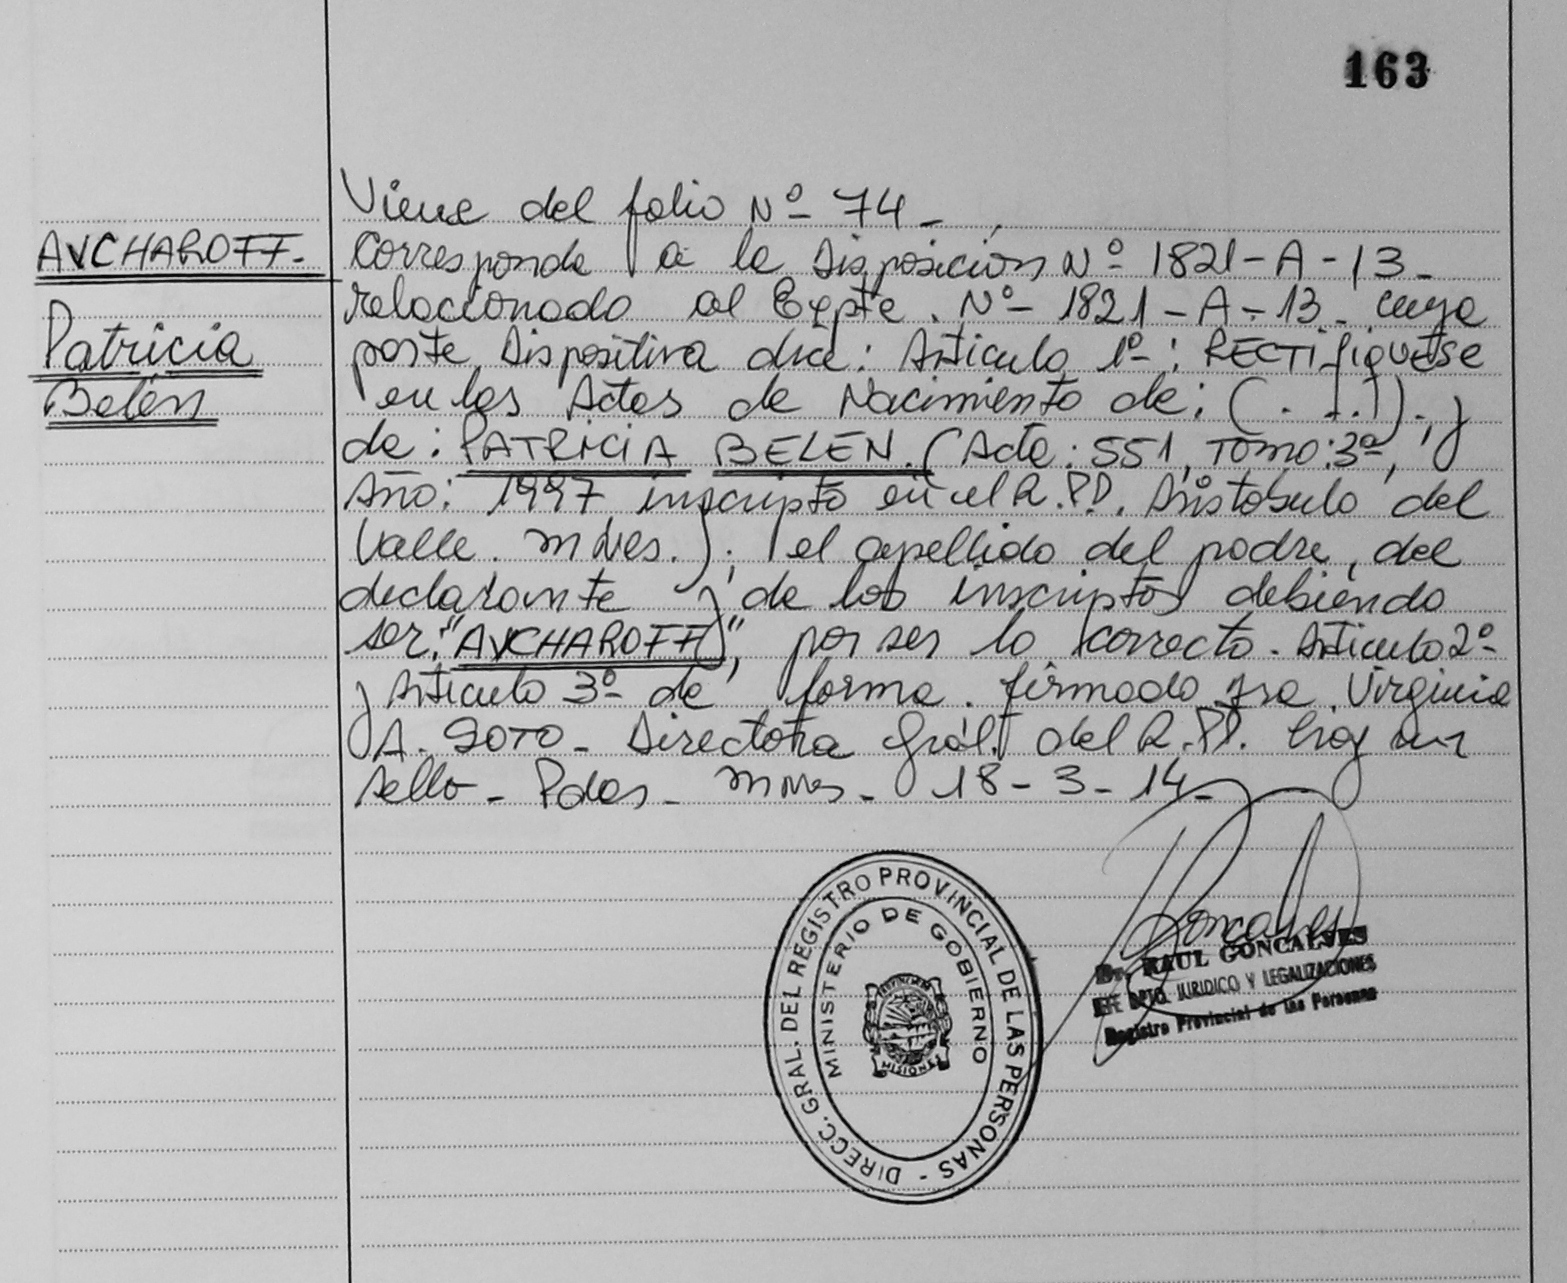 163
AVCHAROFF.-
Patricia
Belén
Viene del folio Nº 74 -
Corresponde a la Disposición Nº 1821-A-13-
relacionado al Expte. Nº 1821-A-13- cuya
parte Dispositiva dice: Articulo 1º-: RECTIfiQUESE
en las Actas de Nacimiento de: (. . .). y
de: PATRICIA BELEN. (Acta: 551, Tomo: 3º,
Año: 1997 inscripto en el R.P.P. Aristobulo del
Valle. Mnes.); el apellido del padre, del
declarante y de los inscriptos debiendo
ser: "AVCHAROFF", por ser lo correcto. Articulo 2º-
y Articulo 3º- de forma. firmado Virginia
A. SOTO- Directora Grál. del R.PP. hay un
sello- Pdas- Mnes- 18-3-14-
DIRECC. GRAL. DEL REGISTRO PROVINCIAL DE LAS PERSONAS -
MINISTERIO DE GOBIERNO
PROVINCIA
MISIONES
Goncalves
Dr. RAUL GONCALVES
JEFE DPTO. JURIDICO Y LEGALIZACIONES
Registro Provincial de las Personas